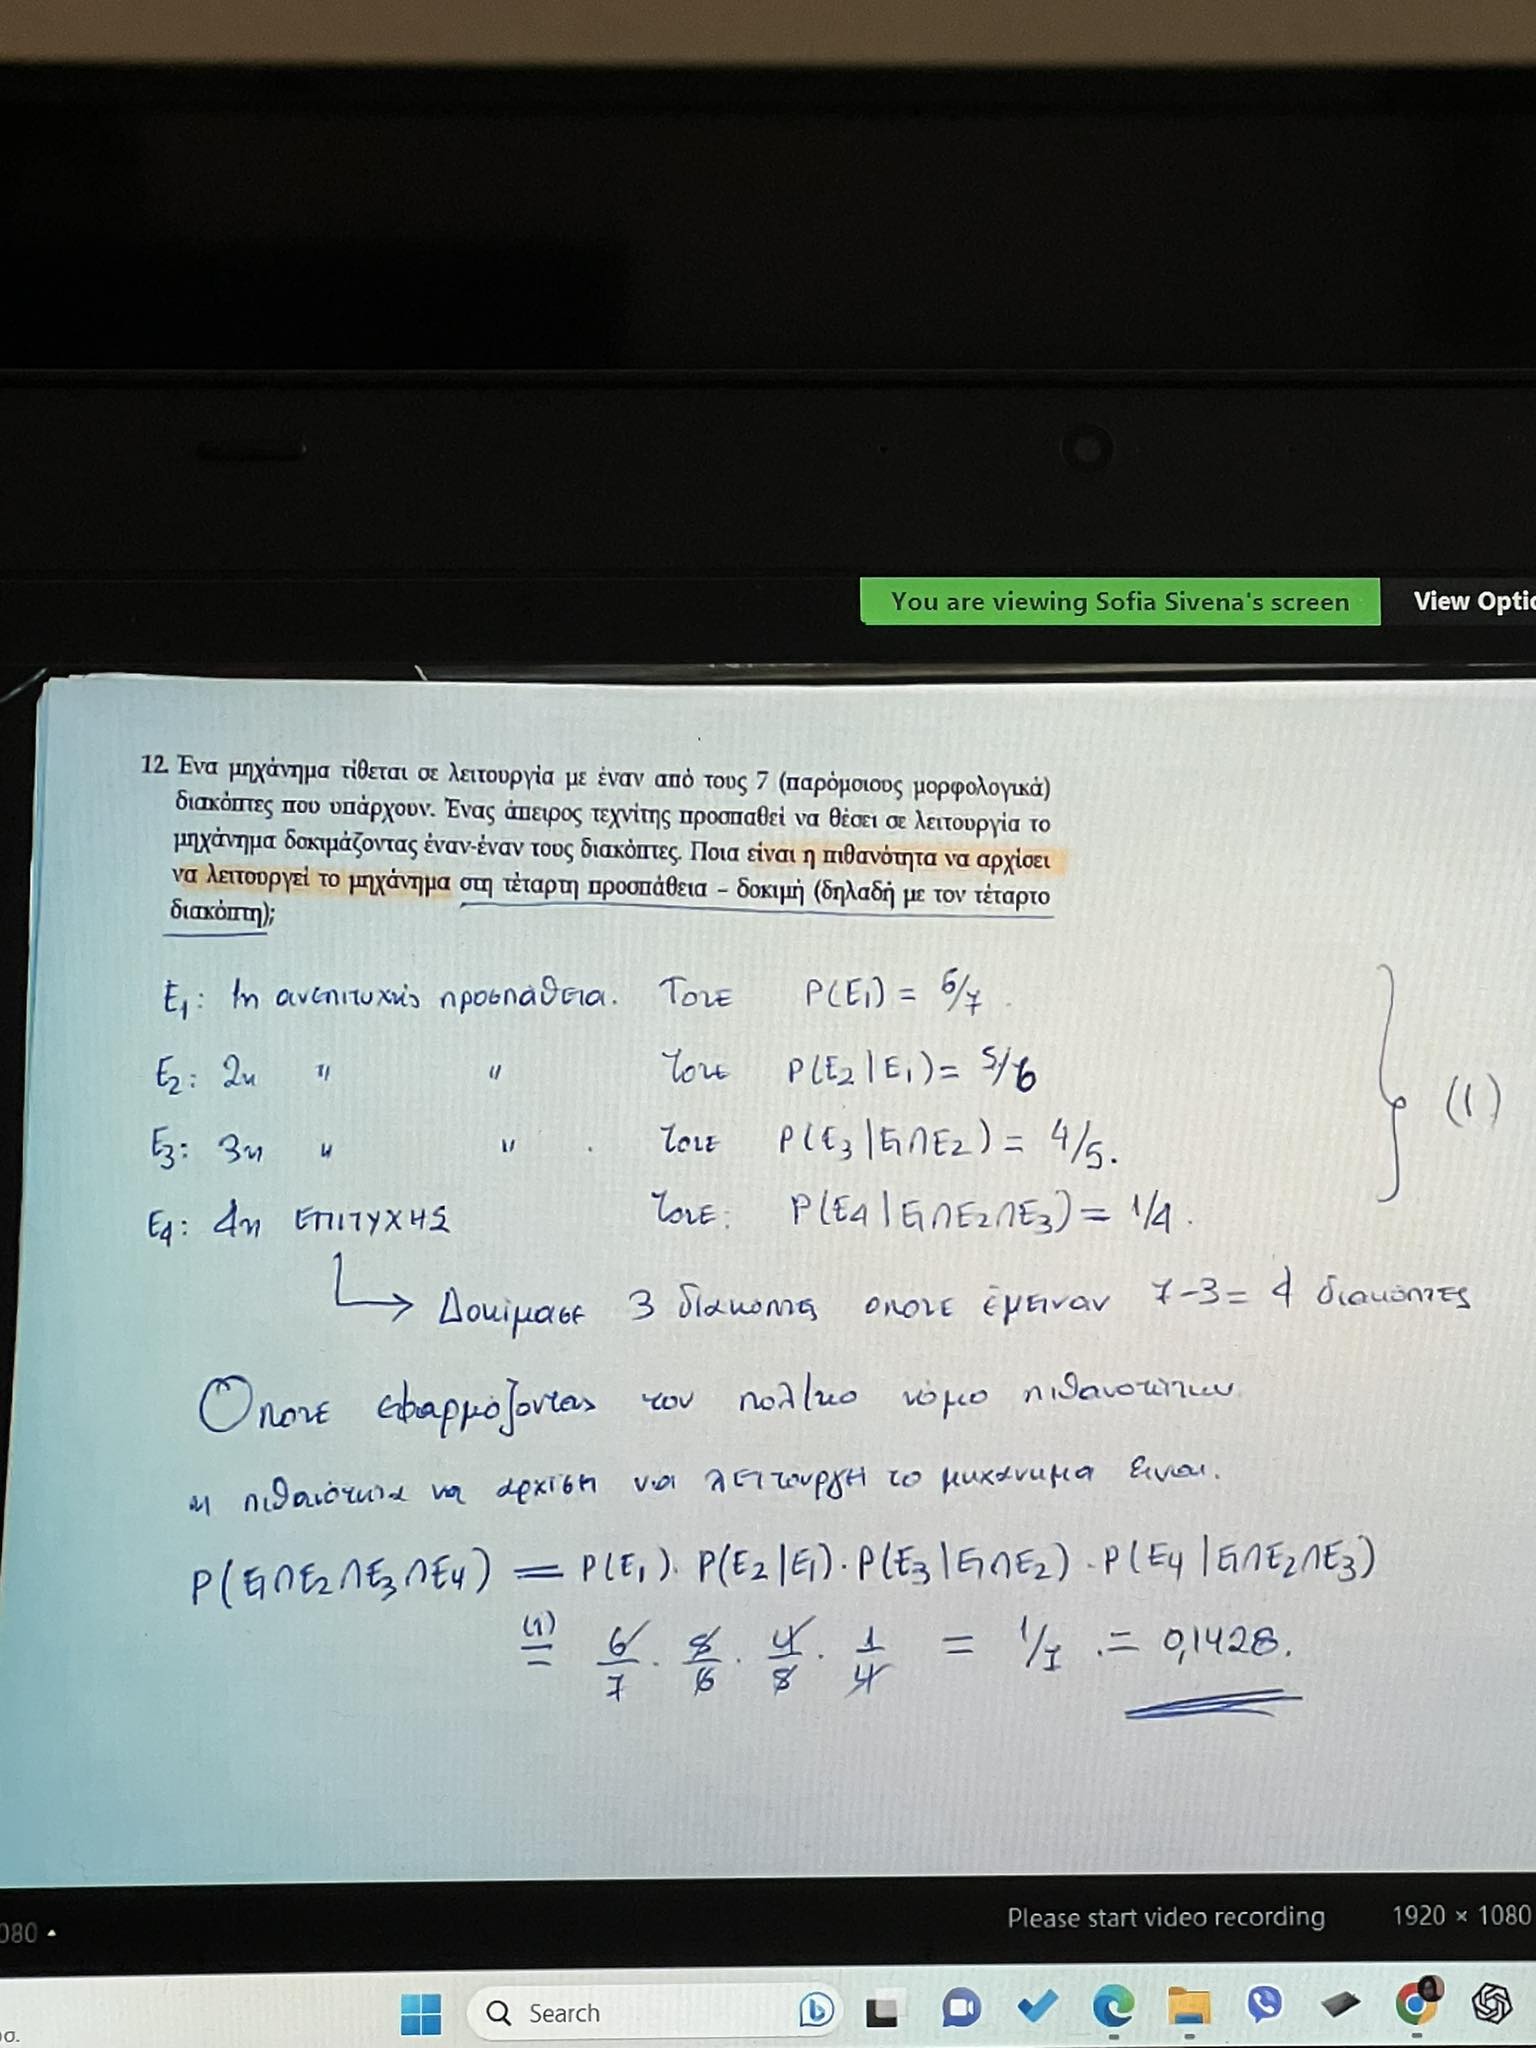 You are viewing Sofia Sivena's screen
View Optio
12. Ένα μηχάνημα τίθεται σε λειτουργία με έναν από τους 7 (παρόμοιους μορφολογικά)
διακόπτες που υπάρχουν. Ένας άπειρος τεχνίτης προσπαθεί να θέσει σε λειτουργία το
μηχάνημα δοκιμάζοντας έναν-έναν τους διακόπτες. Ποια είναι η πιθανότητα να αρχίσει
να λειτουργεί το μηχάνημα στη τέταρτη προσπάθεια – δοκιμή (δηλαδή με τον τέταρτο
διακόπτη);
E1: 1η ανεπιτυχής προσπάθεια. Τοτε P(E1) = 6/7.
E2: 2η " " Τοτε P(E2|E1) = 5/6
E3: 3η " " . Τοτε P(E3|E1∩E2) = 4/5.
E4: 4η ΕΠΙΤΥΧΗΣ Τοτε: P(E4|E1∩E2∩E3) = 1/4.
(1)
→ Δοκίμασε 3 διακοπτες οποτε έμειναν 7-3= 4 διακόπτες
Οποτε εφαρμόζοντας τον πολ/κο νόμο πιθανοτήτων
η πιθανότητα να αρχίσει να λειτουργεί το μηχάνημα ειναι.
P(E1∩E2∩E3∩E4) = P(E1). P(E2|E1). P(E3|E1∩E2) . P(E4|E1∩E2∩E3)
(1) = 6/7 . 5/6 . 4/5 . 1/4 = 1/7 .= 0,1428.
080
Please start video recording
1920 × 1080
Search
σ.